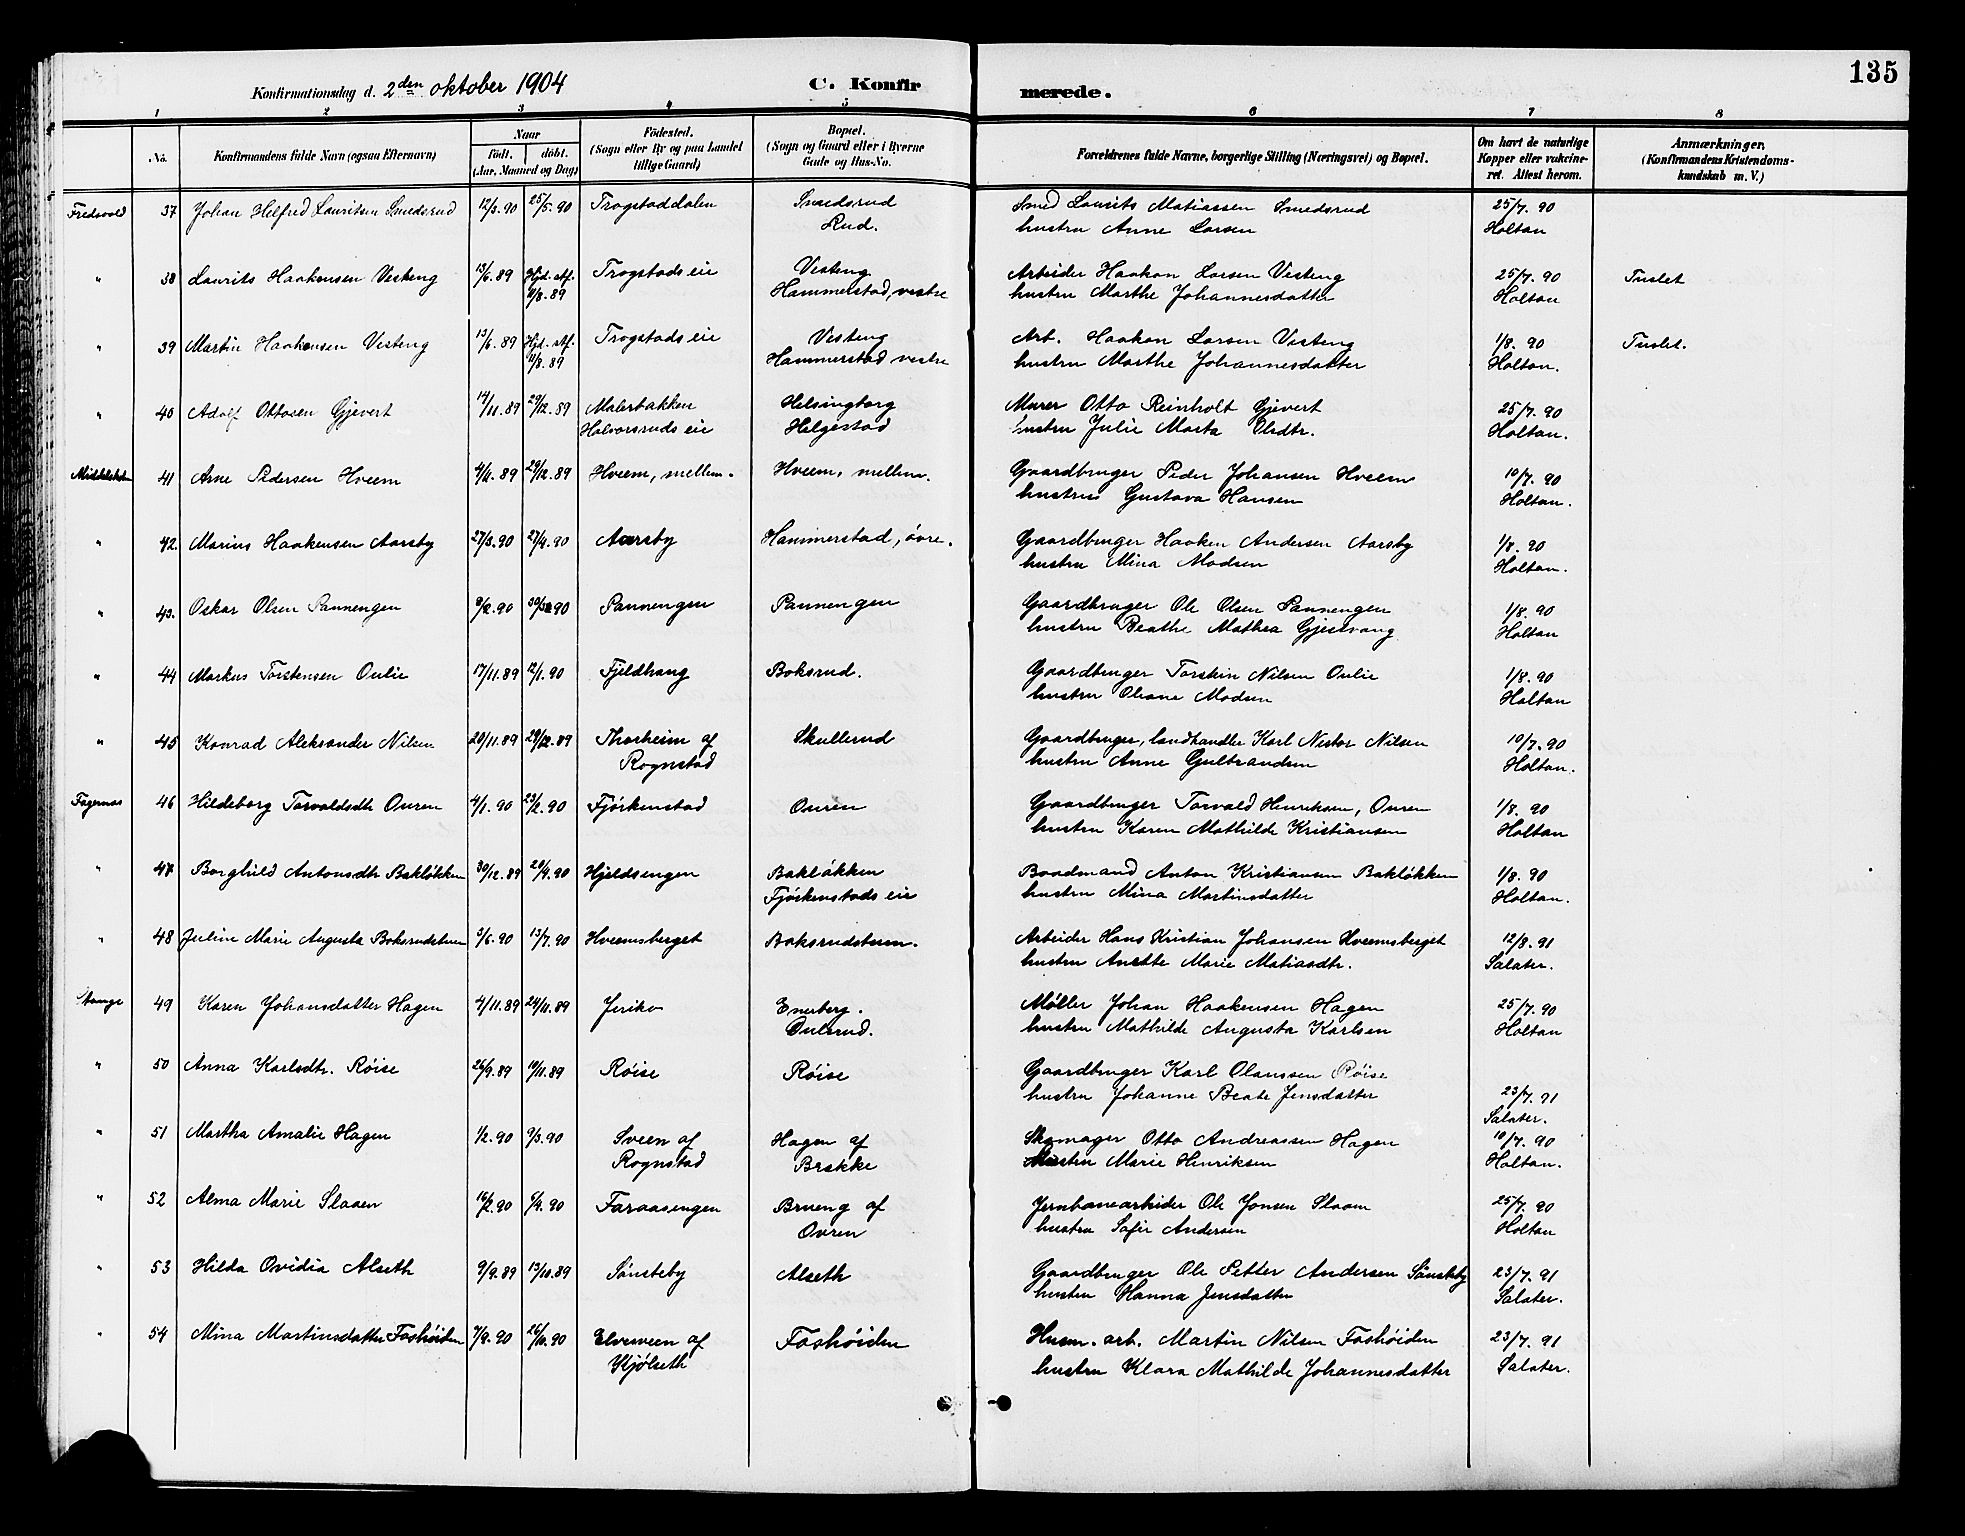 135
Konfirmationsdag d. 2den oktober 1904 C. Konfirmerede.
1 2 3 4 5 6 7 8
No. Konfirmandens fulde Navn (ogsaa Efternavn) Naar födt. döbt. (Aar, Maaned og Dag) Födested. (Sogn eller By og paa Landet tillige Gaard) Bopæl. (Sogn og Gaard eller i Byerne Gade og Hus-No. Forældrenes fulde Navne, borgerlige Stilling (Næringsvei) og Bopæl. Om havt de naturlige Kopper eller vakcineret. Attest herom. Anmærkninger. (Konfirmandens Kristendomskundskab m. V.)
Fredsvold 37 Johan Hilfred Lauritsen Smedsrud 12/3.90 25/5.90 Trogstaddalen Smedsrud Smed Laurits Matiassen Smedsrud 25/7.90
Rud. hustru Anne Larsen Holtan
" 38 Laurits Haakensen Vesteng 13/6.89 Hjd. stf. 11/8.89 Trogstads eie Vesteng Arbeider Haakon Larsen Vesteng 25/7.90 Tvilet
Hammerstad, vestre hustru Marthe Johannesdatter Holtan
" 39 Martin Haakensen Vesteng 13/6.89 Hjd. stf. 11/8.89 Trogstads eie Vesteng Arb. Haakon Larsen Vesteng 1/8.90 Tvilet.
Hammerstad vestre hustru Marthe Johannesdatter Holtan.
" 40 Adolf Ottosen Gjevert 14/11.89 29/12.89 Malerbakken Helsingborg Murer Otto Reinholt Gjevert 25/7.90
Halvorsruds eie Helgestad hustru Julie Marta Olsdtr. Holtan.
41 Arne Pedersen Hveem 4/11.89 29/12.89 Hveem, mellem. Hveem, mellem. Gaardbruger Peder Johansen Hveem 10/7.90
hustru Gustava Hansen Holtan.
" 42. Marius Haakensen Aarsby 27/3.90 27/4.90 Aarsby Hammerstad, övre. Gaardbruger Haaken Andersen Aarsby 1/8.90
hustru Mina Madsen Holtan.
" 43. Oskar Olsen Pannengen 9/2.90 30/3.90 Pannengen Pannengen Gaardbruger Ole Olsen Pannengen 1/8.90
hustru Beathe Mathea Gjestvang Holtan
" 44 Markus Torstensen Oulie 17/11.89 12/1.90 Fjeldhaug Boksrud. Gaardbruger Torstein Nilsen Oulie 1/8.90
hustru Oliane Madsen Holtan
" 45 Konrad Aleksander Nilsen 20/11.89 29/12.89 Thorheim af Skullerud Gaardbruger, landhandler Karl Nestor Nilsen 10/7.90
Rognstad hustru Anne Gulbrandsen Holtan.
Fagernas 46 Hildeborg Torvaldsdtr Ouren 4/1.90 23/2.90 Fjörkenstad Ouren Gaardbruger Torvald Henriksen, Ouren 1/8.90
hustru Karen Mathilde Kristiansen Holtan
" 47 Borghild Antonsdtr Baklökken 30/12.89 20/4.90 Hjeldsengen Baklökken Baadmand Anton Kristiansen Baklökken 1/8.90
Fjörkenstads eie hustru Mina Martinsdatter Holtan.
" 48 Juline Marie Augusta Boksrudstuen 3/6.90 13/7.90 Hveemsberget Boksrudstuen. Arbeider Hans Kristian Johansen Hveemsberget 12/8.91
hustru Anette Marie Matiasdtr. Salater.
Stange 49 Karen Johansdatter Hagen 4/11.89 24/11.89 Jeriko Enerberg. Möller Johan Haakensen Hagen 25/7.90
Oulsrud. hustru Mathilde Augusta Karlsen Holtan
" 50 Anna Karlsdtr. Röise 26/9.89 10/11.89 Röise Röise Gaardbruger Karl Olaussen Röise
hustru Johanne Beate Jensdatter 23/7.91
Salater.
" 51 Martha Amalie Hagen 1/2.90 9/3.90 Sveen af Hagen af Skomager Otto Andreassen Hagen 10/7.90
Rognstad Brække hustru Marie Henriksen Holtan.
" 52 Alma Marie Slaaen 16/2.90 6/4.90 Faraasengen Brueng af Jernbanearbeider Ole Jonsen Slaaen 25/7.90
Ovren hustru Sofie Andersen Holtan
" 53 Hilda Ovidia Alseth 9/9.89 13/10.89 Sönsteby Alseth Gaardbruger Ole Petter Andersen Sönsteby 23/7.91
hustru Hanna Jensdatter Salater.
" 54 Mina Martinsdatter Foshöiden 7/9.90 26/10.90 Elvesveen af Foshöiden Husm. arb. Martin Nilsen Foshöiden 23/7.91
Kjölseth hustru Klara Mathilde Johannesdatter Salater.